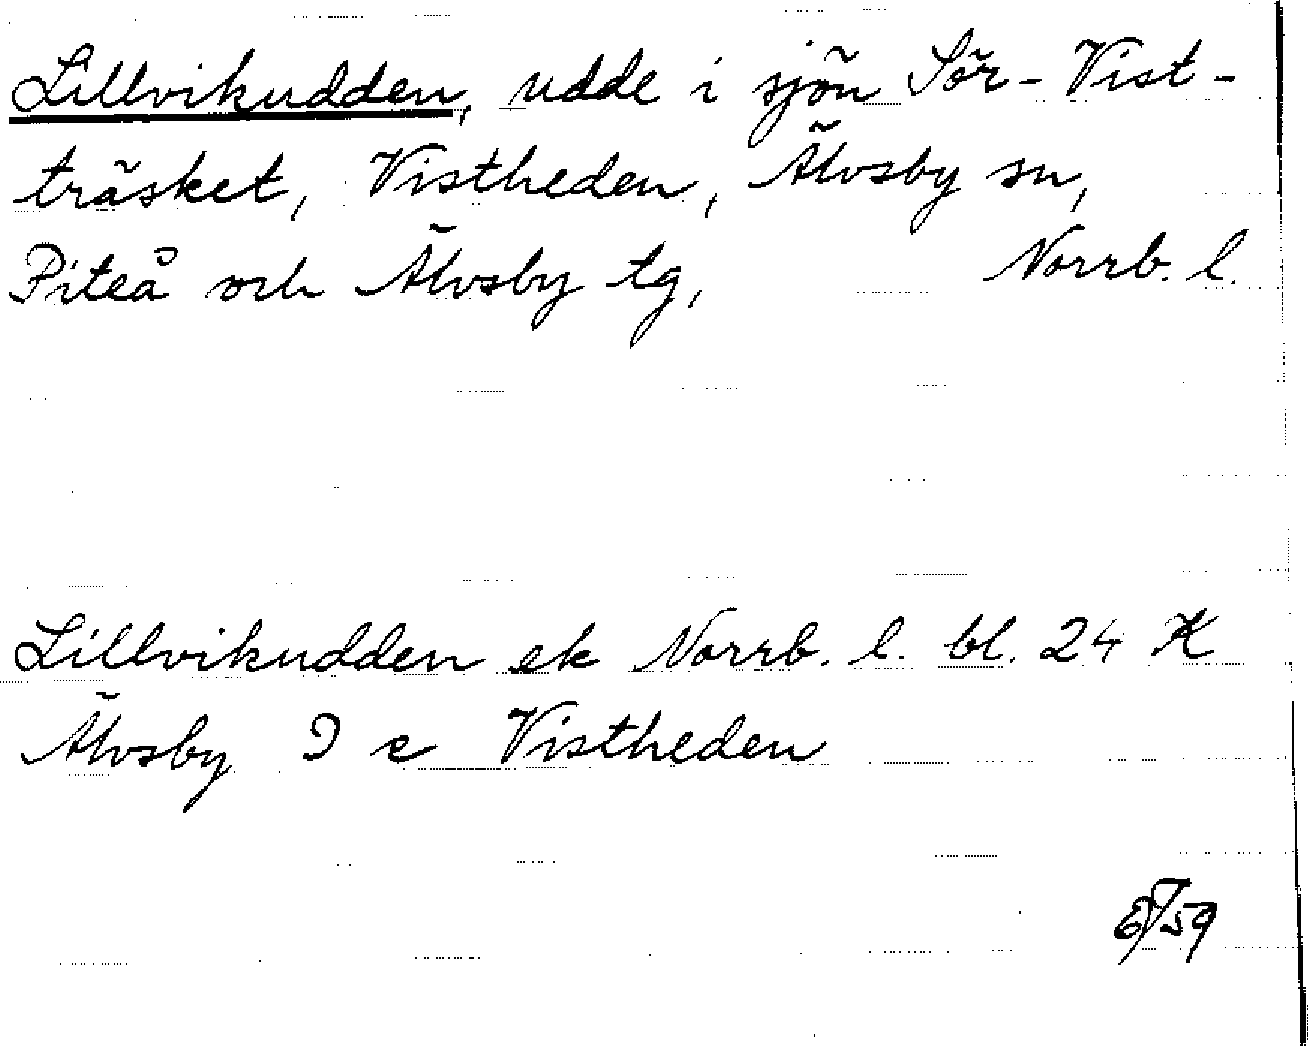 Lillvikudden, udde i sjön Sör-Vist-
träsket, Vistheden, Älvsby sn,
Piteå och Älvsby tg, Norrb. l.
Lillvikudden ek Norrb. l. bl. 24 K
Älvsby 9 c Vistheden